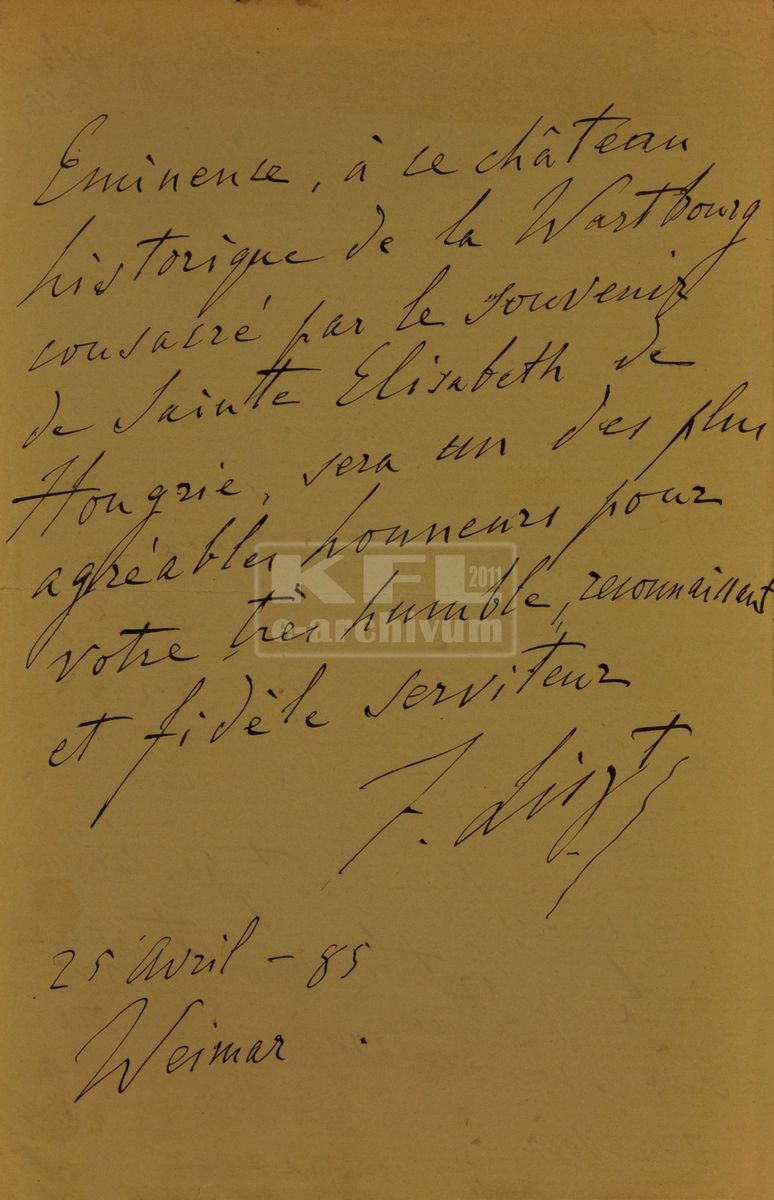 Eminence, à ce château
historique de la Wartbourg
consacré par le souvenir
de Sainte Elisabeth de
Hongrie, sera un des plus
agréables honneurs pour
KFL 2011
e-archivum
votre très humble, reconnaissant
et fidèle serviteur
F. Liszt
25 Avril - 85
Weimar.